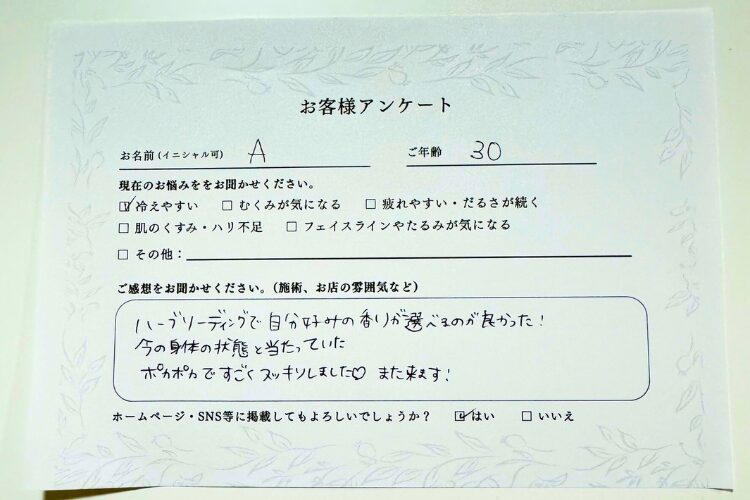 お客様アンケート
お名前(イニシャル可) A ご年齢 30
現在のお悩みををお聞かせください。
☑冷えやすい □むくみが気になる □疲れやすい・だるさが続く
□肌のくすみ・ハリ不足 □フェイスラインやたるみが気になる
□その他：
ご感想をお聞かせください。（施術、お店の雰囲気など）
ハーブリーディングで自分好みの香りが選べるのが良かった！
今の身体の状態と当たっていた
ポカポカですごくスッキリしました♡ また来ます！
ホームページ・SNS等に掲載してもよろしいでしょうか？ ☑はい □いいえ